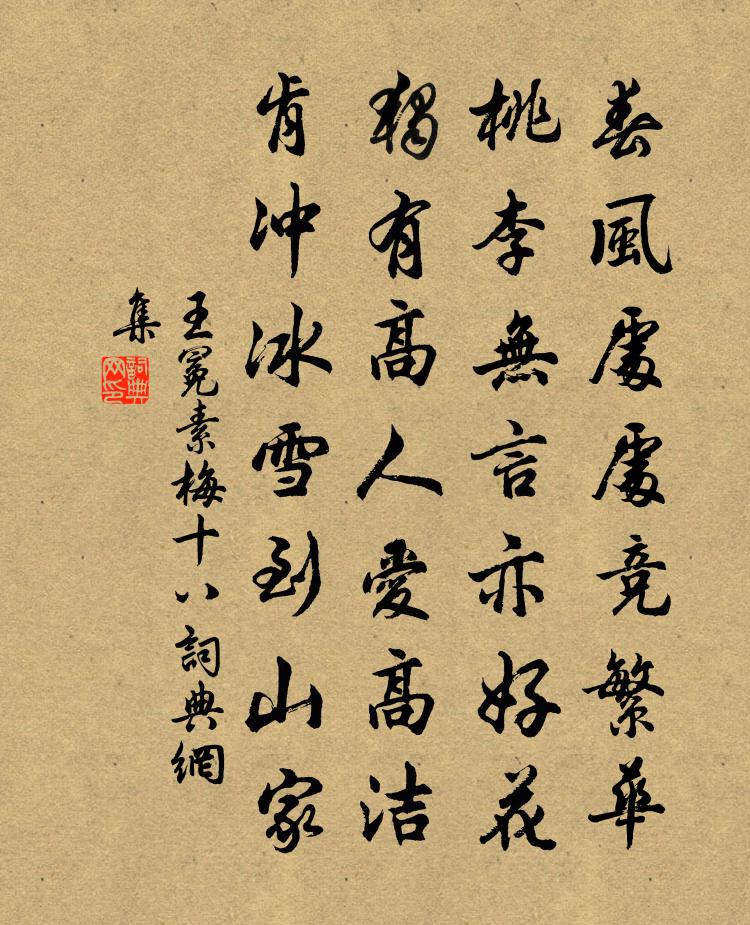 春風處處競繁華
桃李無言亦好花
獨有高人愛高潔
肯冲冰雪到山家
王冕素梅十八 詞典網
集
詞典
网印